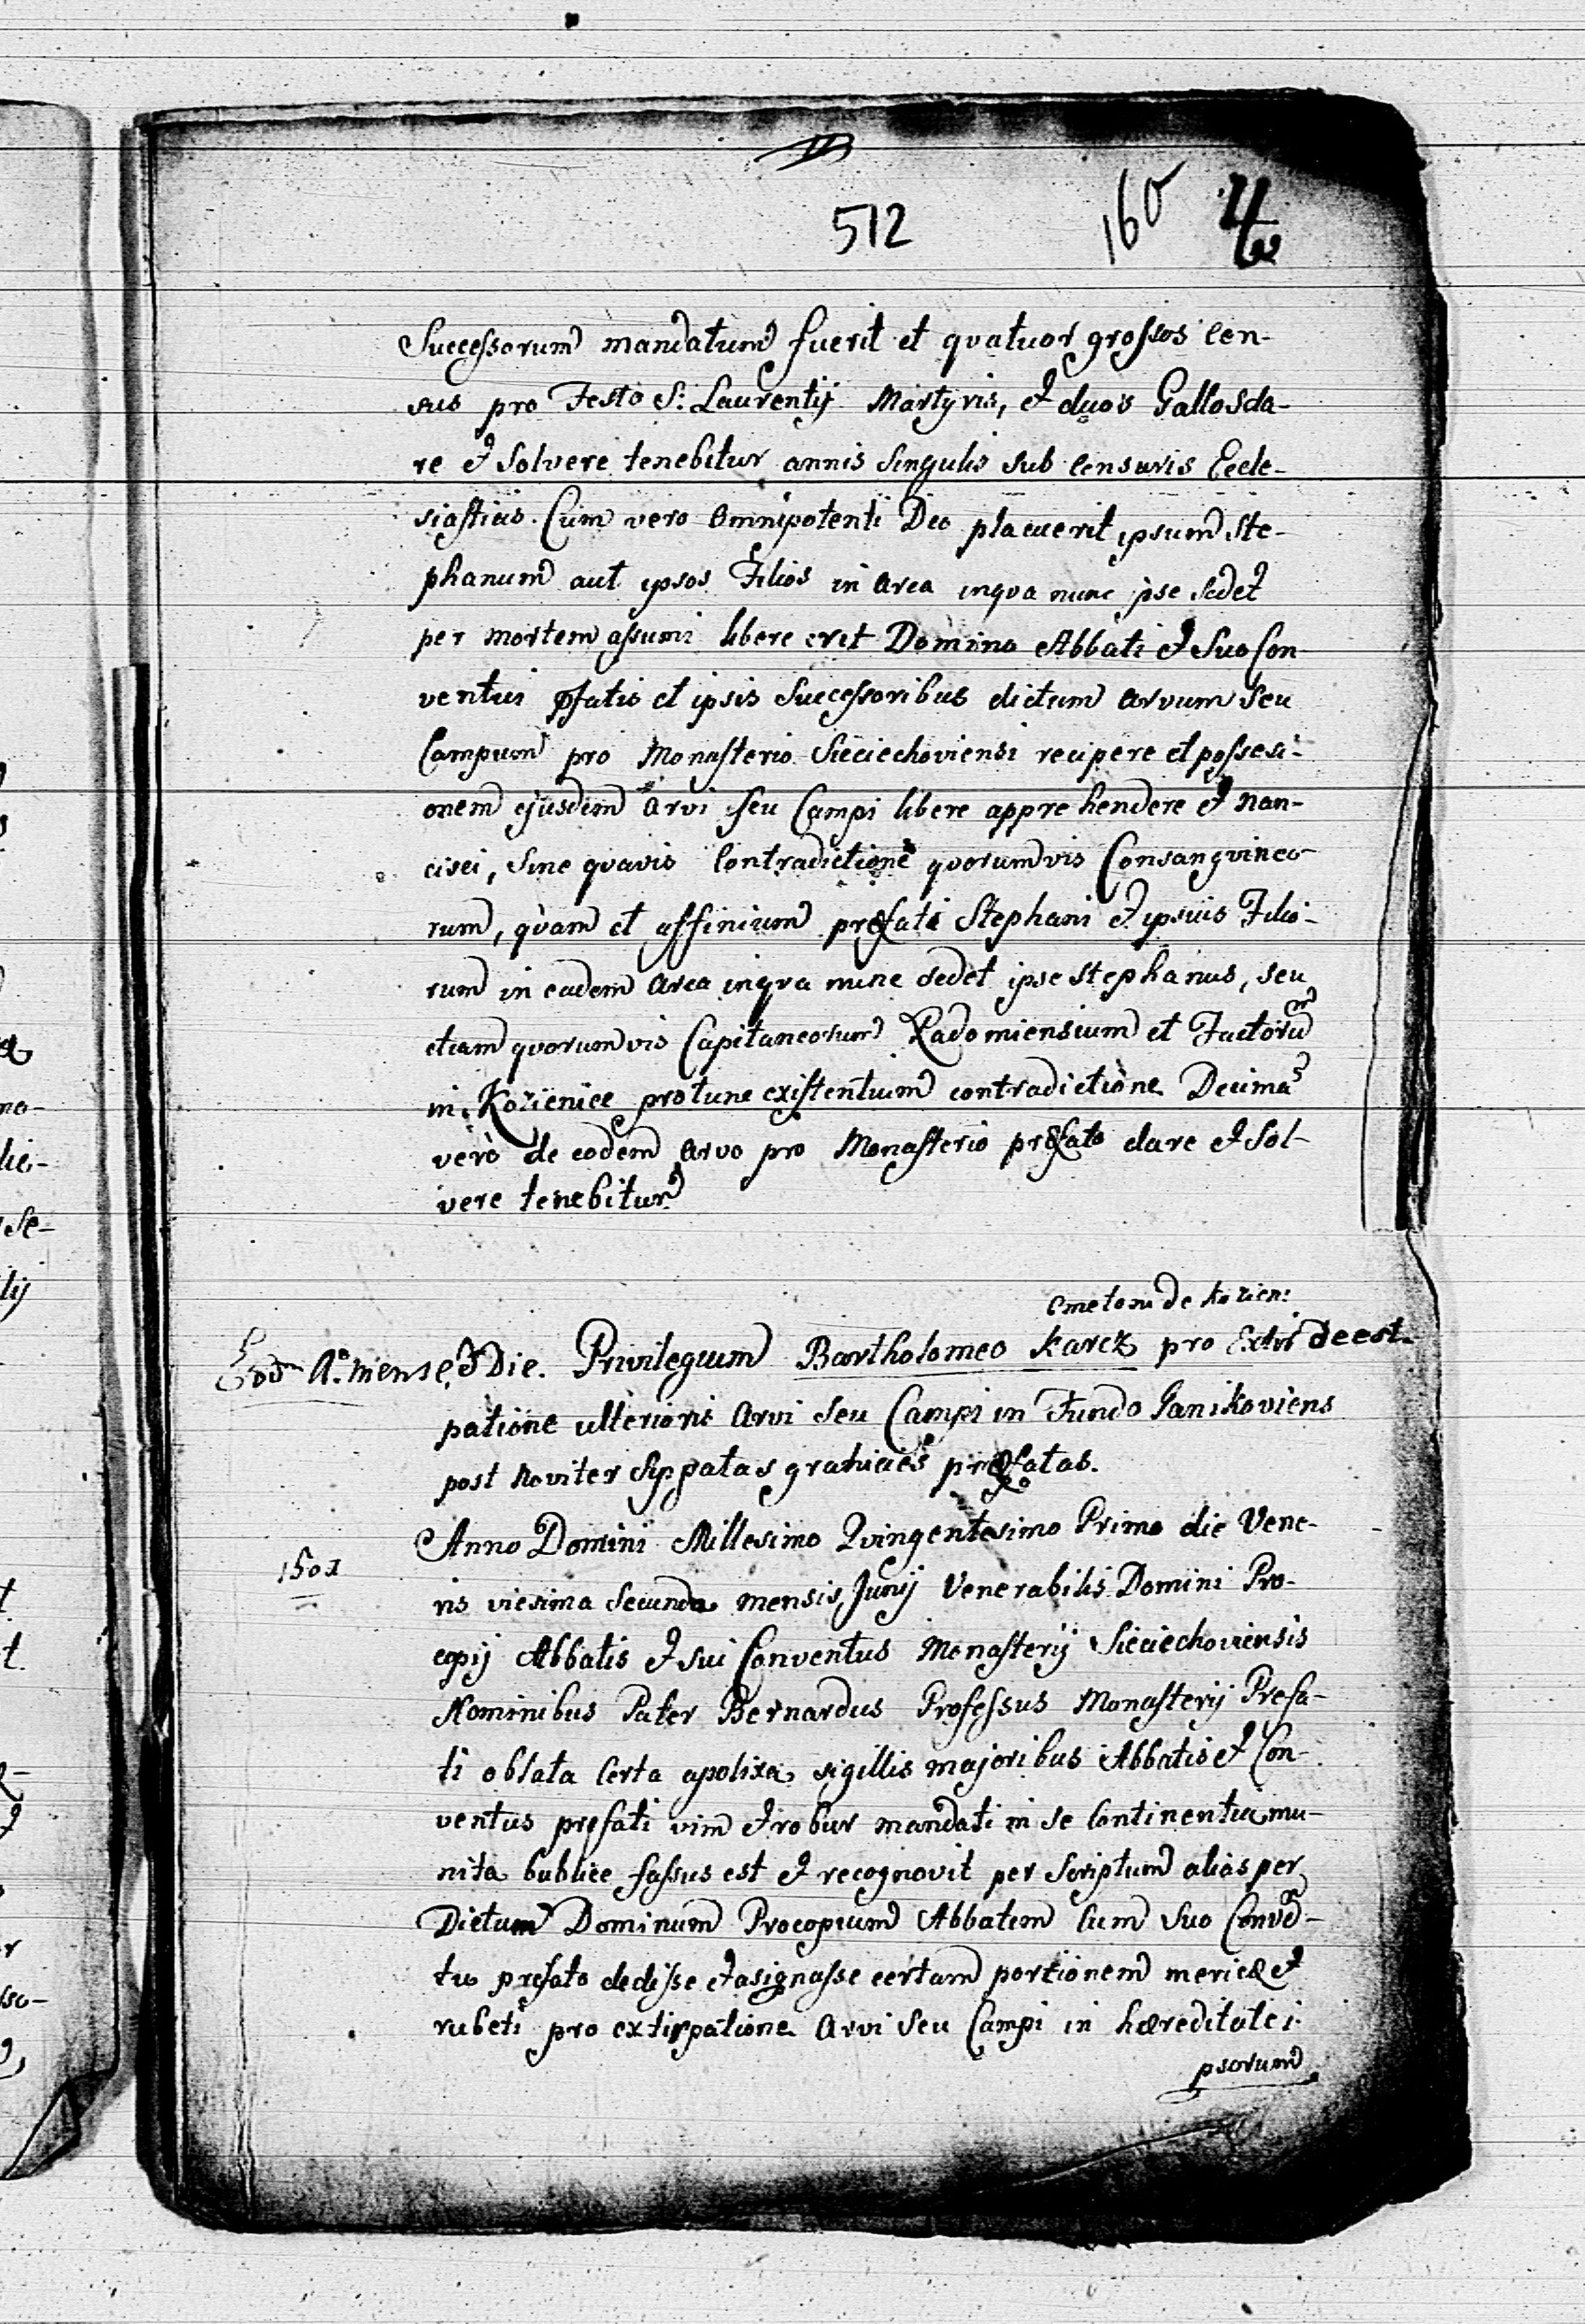 512 160
Successorum mandatum fuerit et quatuor grossos cen-
sus pro Festo S: Laurentij Martyris, et duos Gallos da-
re et Solvere tenebitur annis Singulis sub Censuris Eccle-
siasticis. Cum vero Omnipotenti Deo placuerit ipsum Ste-
phanum aut ipsos Filios in Area inqva nunc ipse Sedet
per mortem assumi libere erit Domino Abbati et Suo Con
ventui pfatis et ipsis Successoribus dictum arvum Seu
Campum pro Monasterio Sieciechoviensi recipere et possesi-
onem ejusdem Arvi seu Campi libere apprehendere et nan-
cisci, Sine quavis Contradictione qvorumvis Consangvineo-
rum, qvam et affinium præfati Stephani et ipsius Filio-
rum in eadem Area inqva nunc sedet ipse Stephanus, seu
etiam qvorumvis Capitaneorum Radomiensium et Factorum
in Kozienice protunc existentium contradictione Decimas
verò de eodem Arvo pro Monasterio præfato dare et Sol-
vere tenebitur
Cmetoni de Kozien:
Eodm Ao. Mense, et Die. Privilegium Bartholomeo Karcz pro Extir deest.
patione ulterioris Arvi Seu Campi in Fundo Janikoviens
post Noviter Sippatas granicies præfatas.
Anno Domini Millesimo Qvingentesimo Primo die Vene-
1501
ris vicsima Secunda mensis Junij Venerabilis Domini Pro-
copij Abbatis et sui Conventus Monasterij Sieciechoviensis
Nominibus Pater Bernardus Professus Monasterij Prefa-
ti oblata Certa apolixa sigillis majoribus Abbatis et Con-
ventus prefati vim et robur mandati in se Continentia mu-
nita bublice fassus est et recognovit per Scriptum alias per
Dictum Dominum Procopium Abbatem Cum Suo Conven-
tu prefato dedisse et asignasse certam portionem mericæ et
rubeti pro extirpatione Arvi Seu Campi in hæreditate i-
psorum